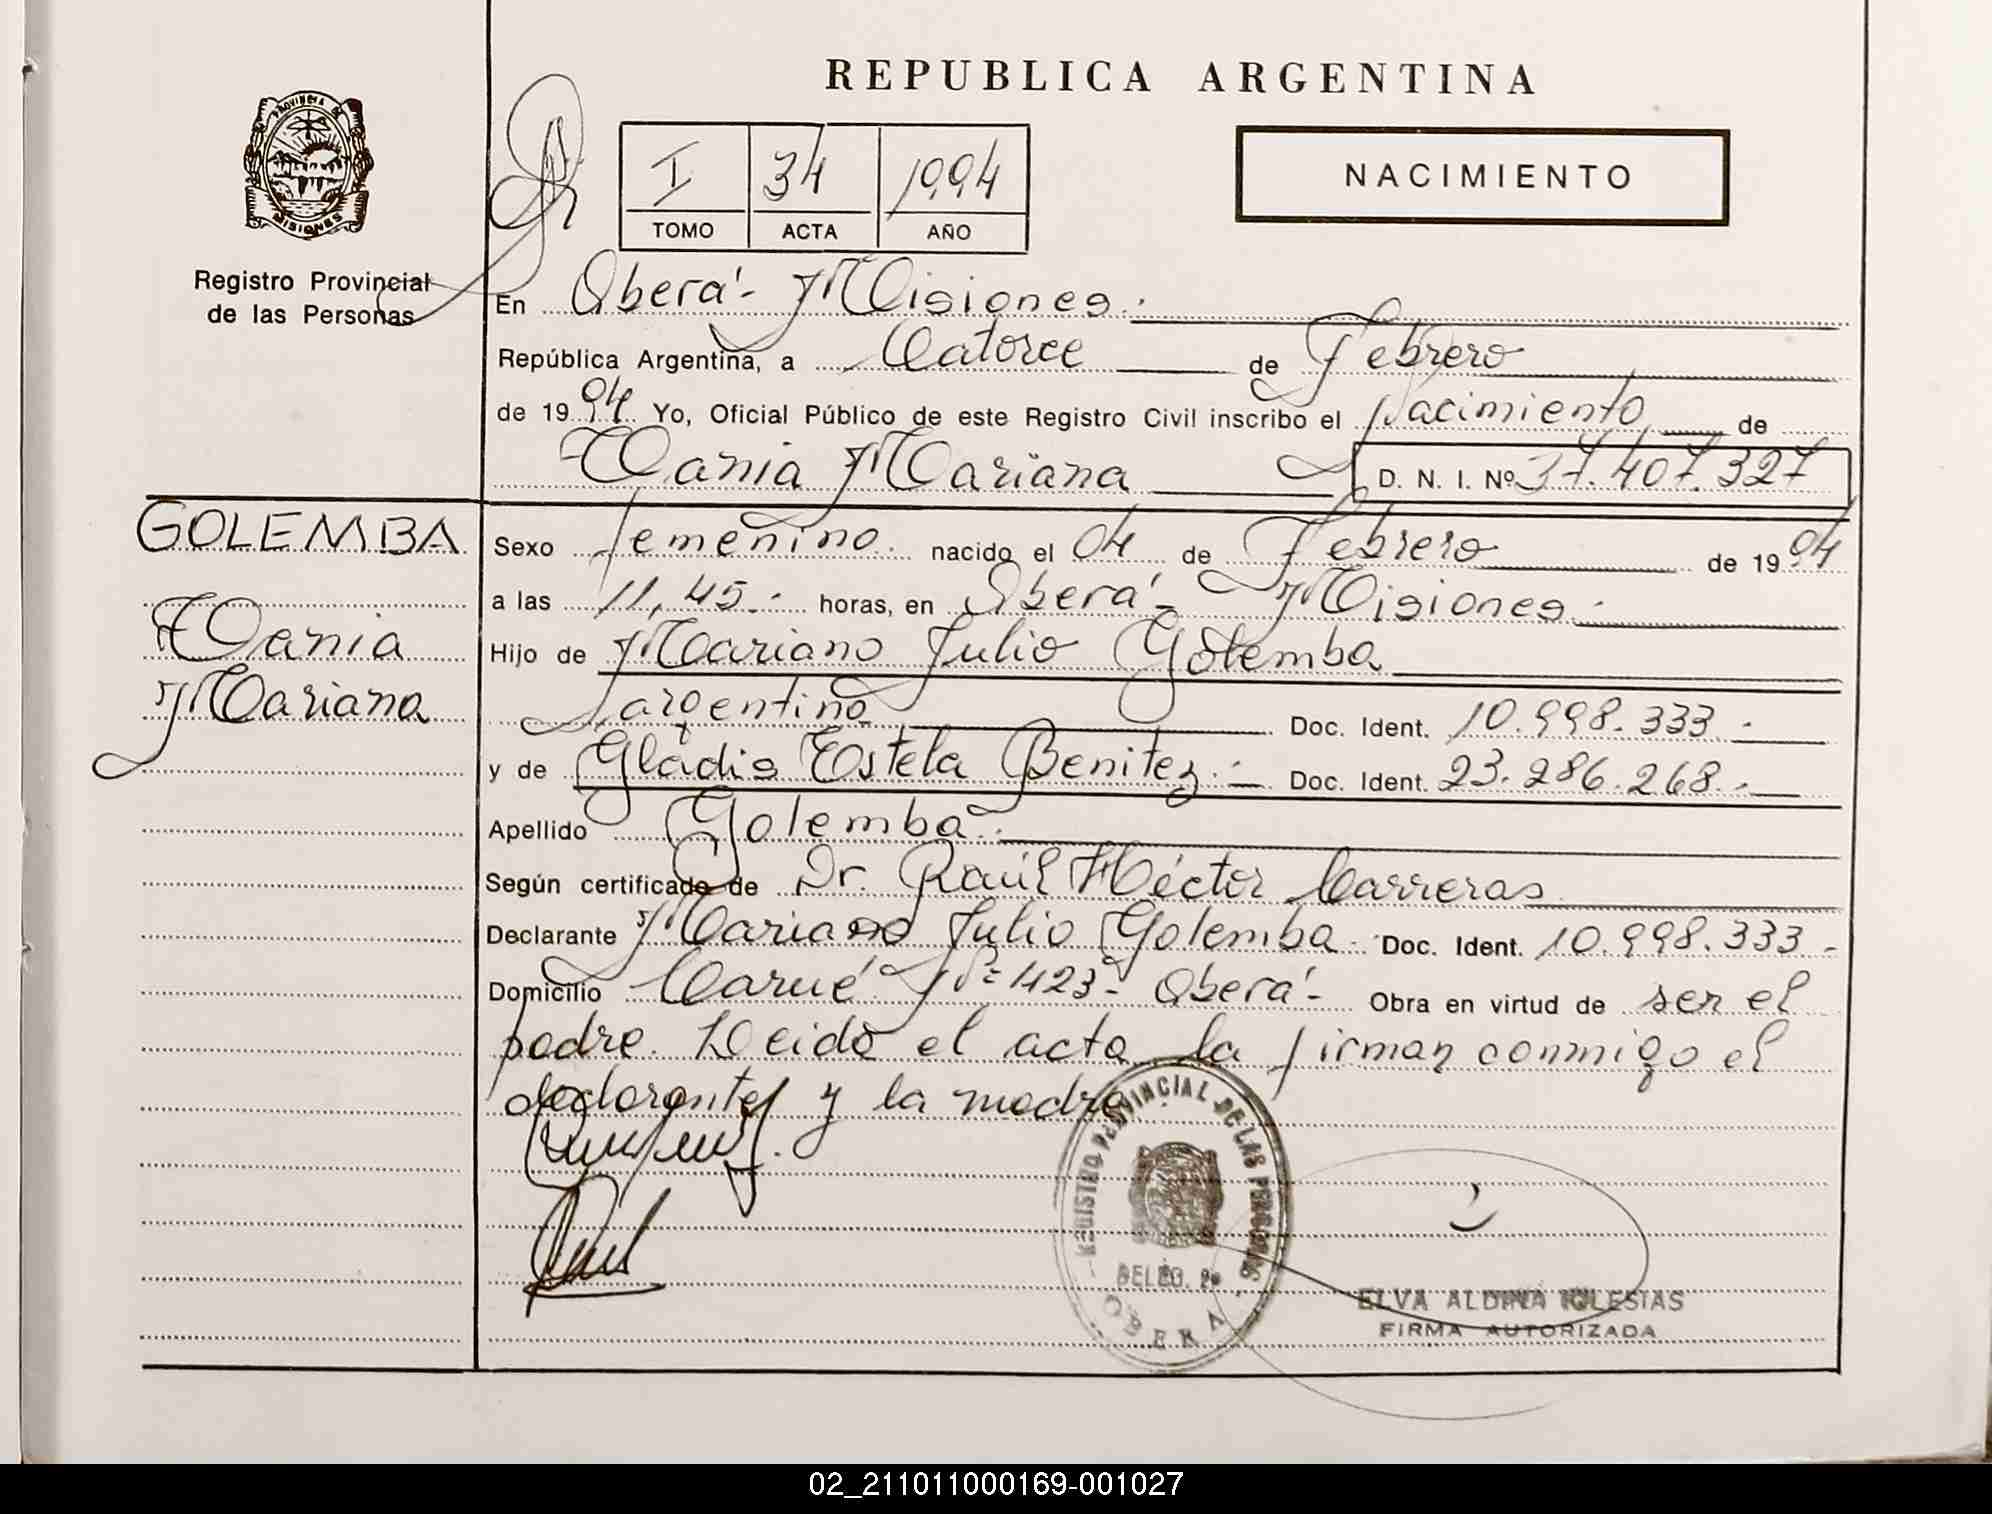 REPUBLICA ARGENTINA
PROVINCIA DE
MISIONES
Registro Provincial
de las Personas
I 34 1994
TOMO ACTA AÑO
NACIMIENTO
En Oberá - Misiones.
República Argentina, a Catorce de Febrero
de 1994 Yo, Oficial Público de este Registro Civil inscribo el Nacimiento de
Vania Mariana D. N. I. Nº 37.407.327
GOLEMBA
Vania
Mariana
Sexo femenino. nacido el 04 de Febrero de 1994
a las 11,45.- horas, en Oberá - Misiones.-
Hijo de Mariano Julio Golemba
argentino Doc. Ident. 10.998.333.-
y de Gladis Estela Benitez.- Doc. Ident. 23.286.268.-
Apellido Golemba.-
Según certificado de Dr. Raúl Héctor Carreras
Declarante Mariano Julio Golemba- Doc. Ident. 10.998.333-
Domicilio Carué Nº 423- Oberá- Obra en virtud de ser el
padre. Leida el acta la firman conmigo el
declarante y la madre
REGISTRO PROVINCIAL DE LAS PERSONAS
OBERA
ELVA ALDINA IGLESIAS
FIRMA AUTORIZADA
02_211011000169-001027